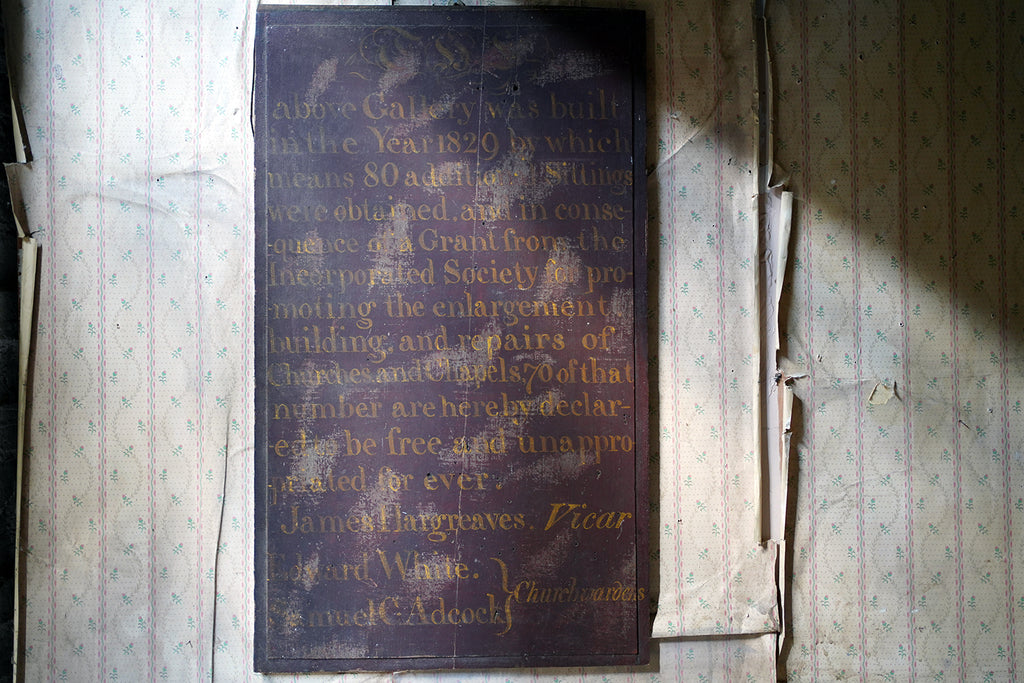 The
above Gallery was built
in the Year 1829 by which
means 80 additional Sittings
were obtained, and in conse-
-quence of a Grant from the
Incorporated Society for pro-
-moting the enlargement,
building, and repairs of
Churches and Chapels, 70 of that
number are hereby declar-
-ed to be free and unappro-
-priated for ever.
James Hargreaves. Vicar
Edward White.
Samuel C. Adcock } Churchwardens